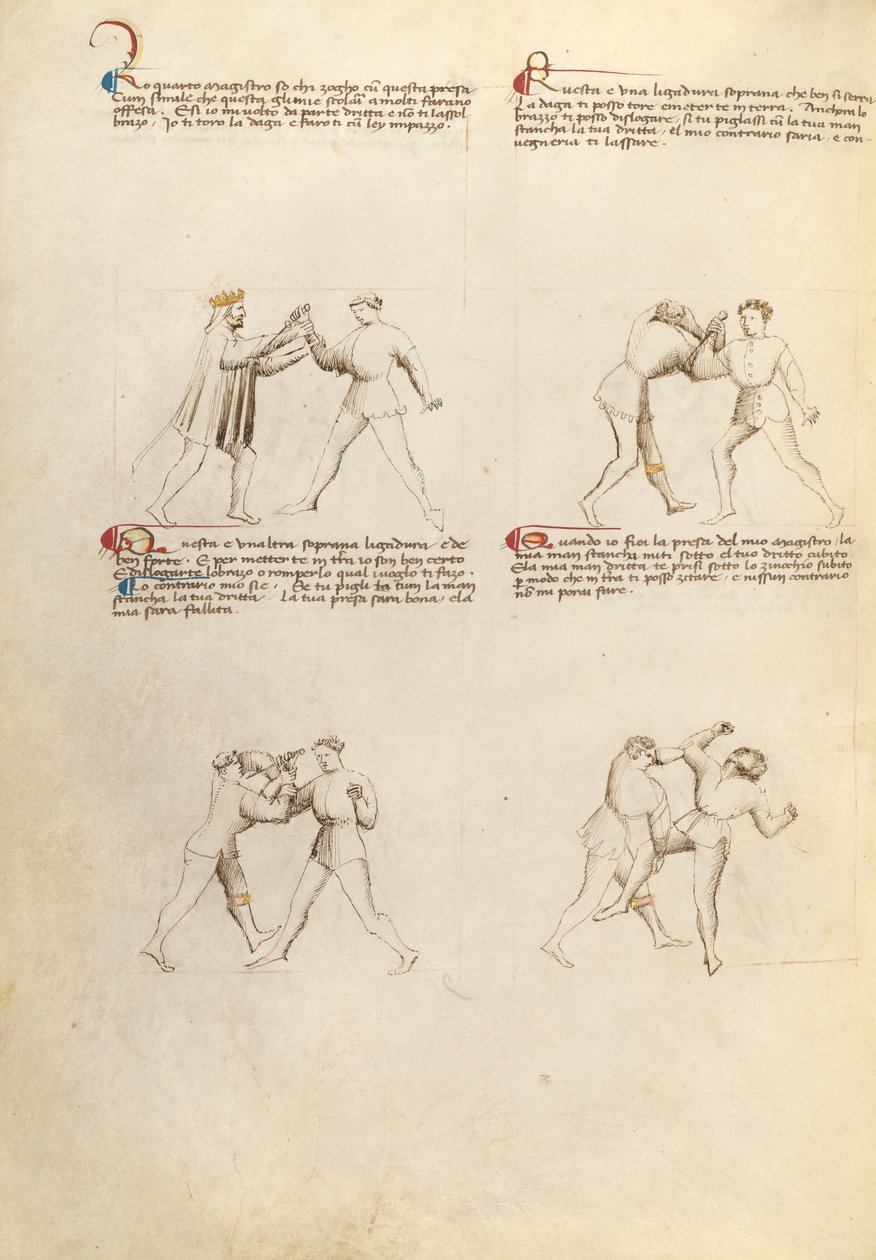 Lo quarto magistro so chi zogho cū questa presa
Cum simile che questa gli mie scolari a molti farano
offesa. E si io mi volto da parte dritta e nō ti lassol
brazo, Io ti toro la daga e faro ti cū ley impazzo.
Questa e una ligadura soprana che ben si serra
La daga ti posso tore e meter te in terra. Anchora lo
brazzo ti posso dislogare, si tu piglassi cū la tua man
stancha la tua dritta, el mio contrario saria, e con-
vegneria ti lassare.
Questa e unaltra soprana ligadura e de
ben forte. E per metter te in tr̄ra io son ben certo
E dislogarte lo brazo o romperlo qual i voglo ti fazo.
Lo contrario mio sie. Se tu pigli la tum la man
stancha la tua dritta. La tua presa sara bona, e la
mia sara fallita.
Quando io fiei la presa del mio magistro, la
mia man stancha miti sotto el tuo dritto cubito
E la mia man dritta te prisi sotto lo zinochio subito
ꝑ modo che in tr̄ra ti posso zitare, e nissun contrario
nō mi porai fare.